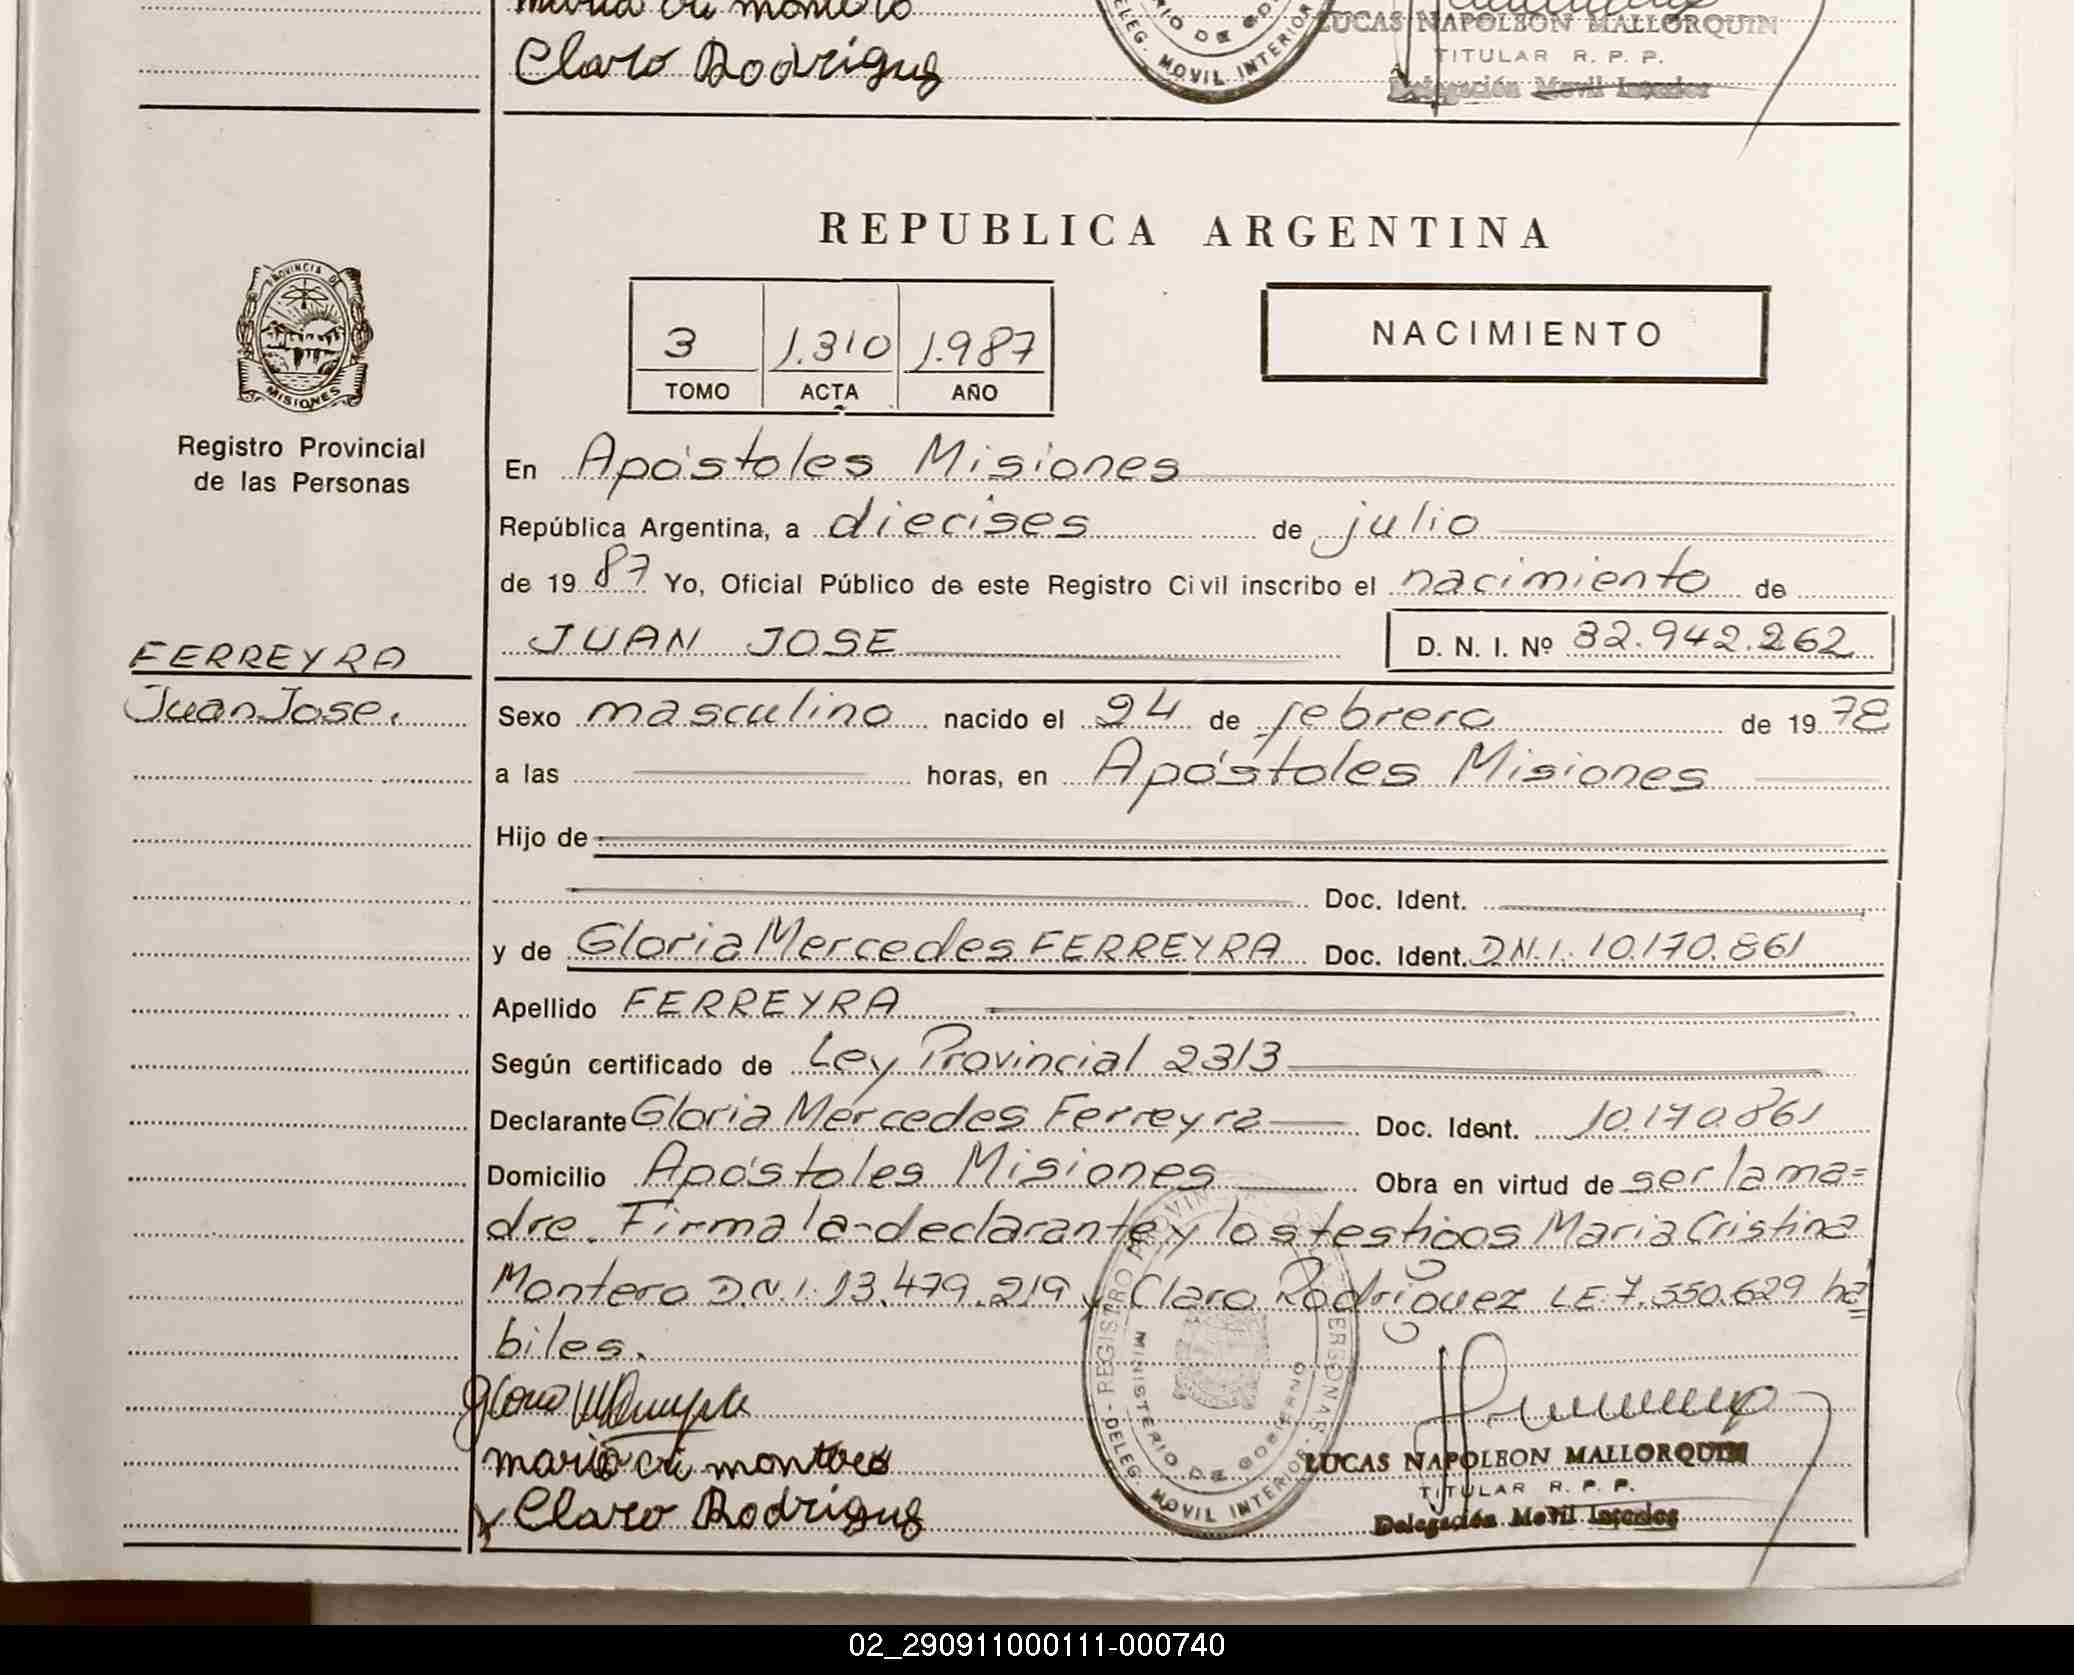 Claro Rodrigues
LUCAS NAPOLEON MALLORQUIN
TITULAR R. P. P.
Delegación Movil Interior
DELEG. MOVIL INTERIOR
REPUBLICA ARGENTINA
PROVINCIA DE
MISIONES
3 1.310 1.987
TOMO ACTA AÑO
NACIMIENTO
Registro Provincial
de las Personas
En Apóstoles Misiones
República Argentina, a diecises de julio
de 19 87 Yo, Oficial Público de este Registro Civil inscribo el nacimiento de
JUAN JOSE D. N. I. Nº 32.942.262
FERREYRA
Juan Jose.
Sexo masculino nacido el 24 de febrero de 19 78
a las horas, en Apóstoles Misiones
Hijo de
Doc. Ident.
y de Gloria Mercedes FERREYRA Doc. Ident. D.N.I. 10.170.861
Apellido FERREYRA
Según certificado de Ley Provincial 2313
Declarante Gloria Mercedes Ferreyra Doc. Ident. 10.170.861
Domicilio Apóstoles Misiones Obra en virtud de ser la ma=
dre. Firma la declarante y los testigos Maria Cristina
Montero D.N.I. 13.479.219 y Claro Rodriguez LE. 7.550.629 há
biles.
maria cri montero
Claro Rodrigues
REGISTRO PROVINCIAL DE LAS PERSONAS - DELEG. MOVIL INTERIOR -
MINISTERIO DE GOBIERNO
LUCAS NAPOLEON MALLORQUIN
TITULAR R. P. P.
Delegación Movil Interior
02_290911000111-000740